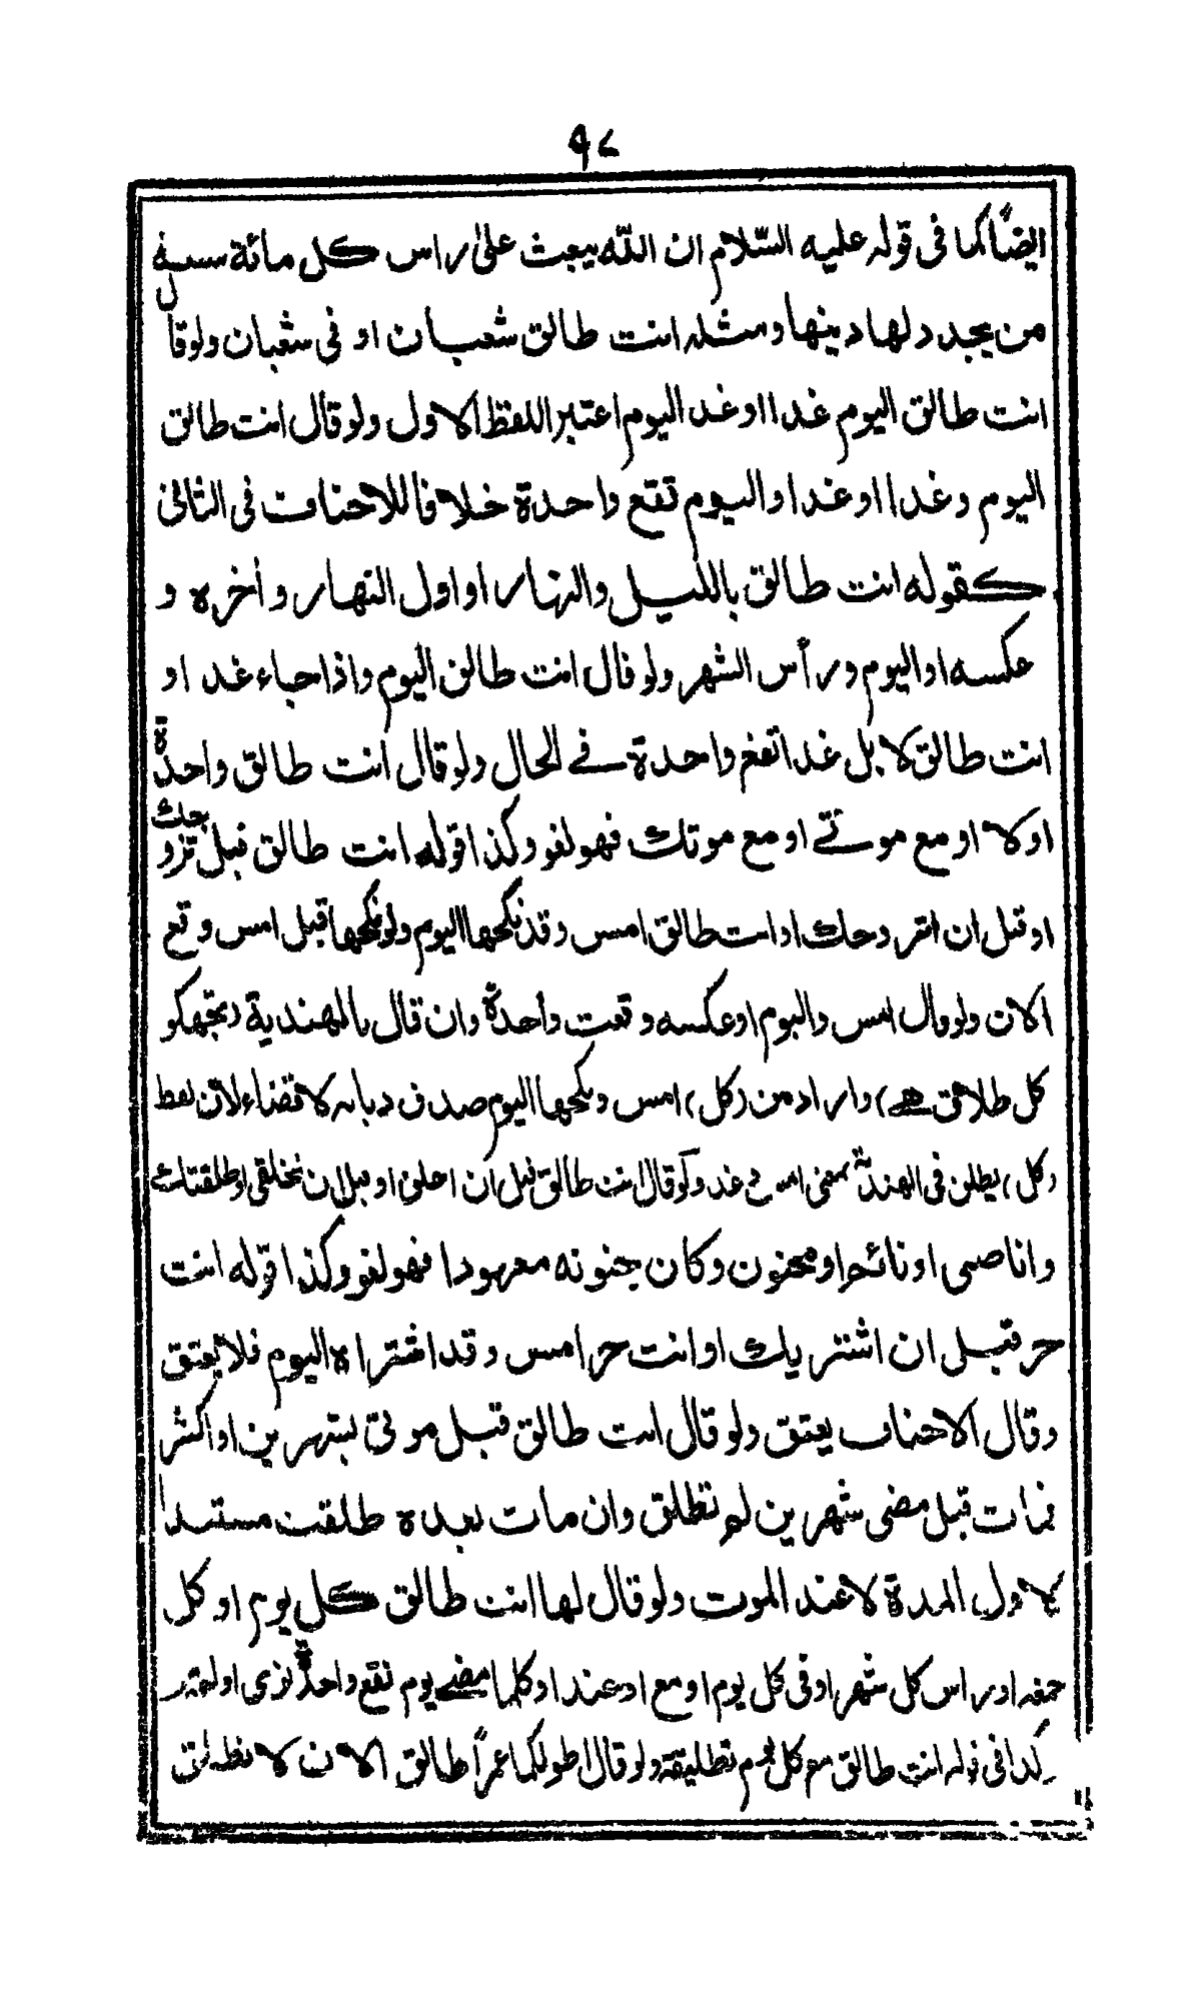 ٩٨
ايضًا كما فى قوله عليه السّلام ان الله يبعث على راس كل مائة سنة
من يجدد لها دينها ومثله انت طالق شعبان او فى شعبان ولوقال
انت طالق اليوم غدا اوغد اليوم اعتبر اللفظ الاول ولوقال انت طالق
اليوم وغدا اوغدا واليوم تقع واحدة خلافا للاحناف فى الثانى
كقوله انت طالق بالليل والنهار او اول النهار وأخره و
عكسه او اليوم ورأس الشهر ولوقال انت طالق اليوم واذا جاء غد او
انت طالق لا بل غدا تقع واحدة في الحال ولوقال انت طالق واحدة
اولا او مع موتي او مع موتك فهولغو وكذا قوله انت طالق قبل تزوجك
اوقبل ان اتزوجك اوانت طالق امس وقد نكحها اليوم ولونكحها قبل امس وقع
الان ولوقال امس واليوم اوعكسه وقعت واحدة وان قال بالهندية (تجهكو
كل طلاق هے) واراد من (كل) امس ونكحها اليوم صدق ديانه لا قضاء لان لفظ
(كل) يطلق فى الهندية بمعنى امس و غد ولوقال انت طالق قبل ان اخلق او قبل ان تخلقى اوطلقتك
وانا صبى او نائم او مجنون وكان جنونه معهودا فهولغو وكذا قوله انت
حر قبل ان اشتريك او انت حر امس وقد اشتراه اليوم فلا يعتق
وقال الاحناف يعتق ولوقال انت طالق قبل موتى بشهرين او اكثر
فمات قبل مضى شهرين لم تطلق وان مات بعده طلقت مستندا
لاول المدة لا عند الموت ولوقال لها انت طالق كل يوم او كل
جمعه اوراس كل شهر اوفى كل يوم او مع اوعند اوكلما مضے يوم تقع واحدة
كذا فى قوله انت طالق مع كل يوم تطليقة ولوقال اطولكما عمرًا طالق الان لا تطلق